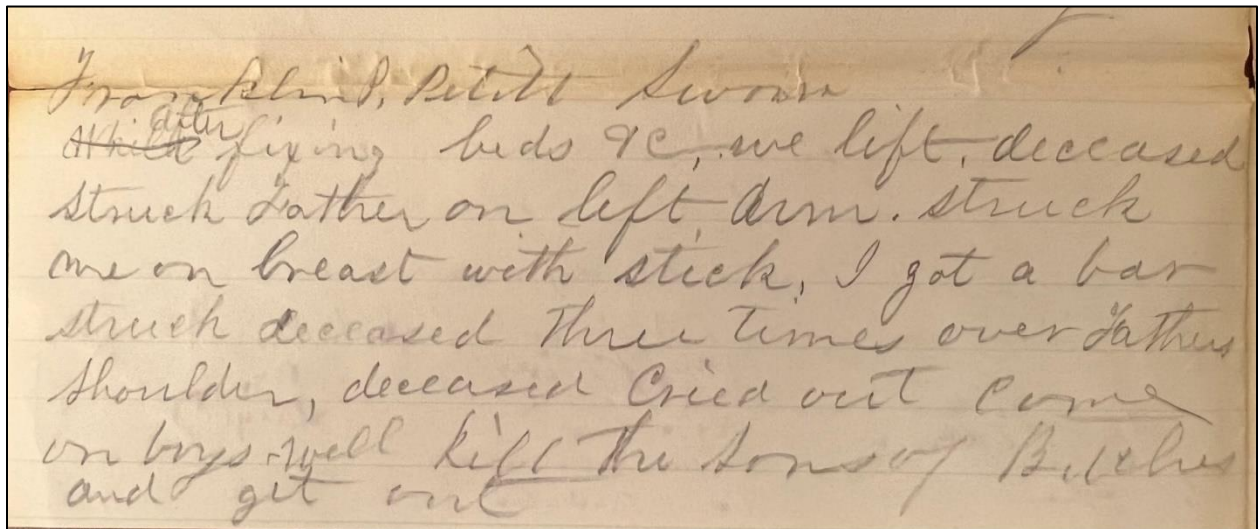 Franklin P. Petitt Sworn
~~While~~ after fixing beds &c, we lift, deceased
struck Father on left Arm. struck
me on breast with stick, I got a bar
struck deceased three times over Fathers
shoulder, deceased Cried out come
on boys well kill the sons of Bitches
and get out